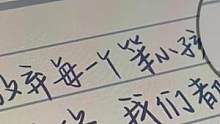 放弃每一个笨小孩
我们都